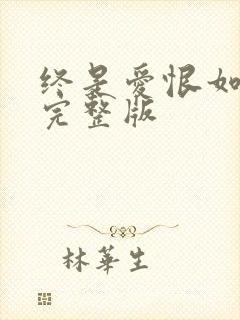 终是爱恨如
完整版
林華生